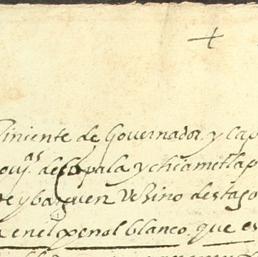 tiniente de Governador y Cap
ouj.as de Copala y chiametlap
e ybarguen Vezino destago
en el penol blanco que es